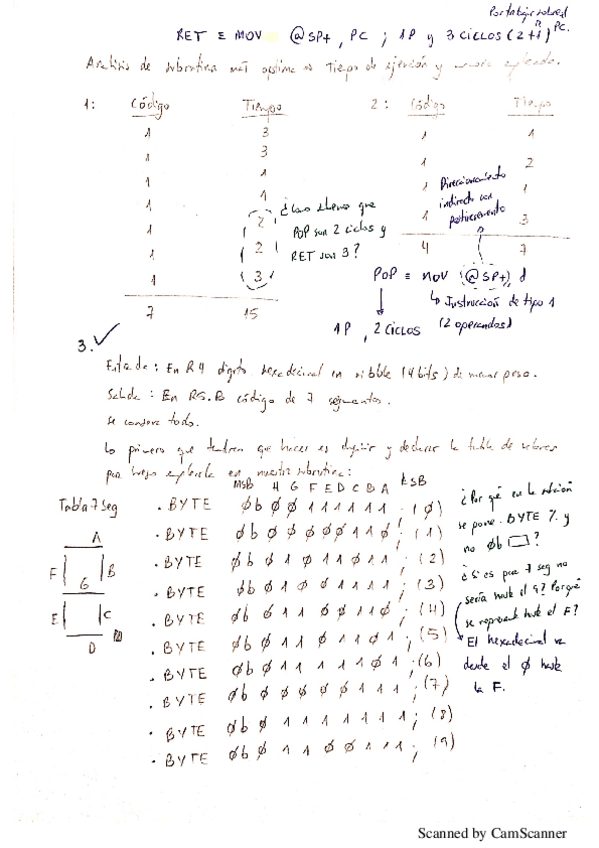 Por trabajar sobre el PC.
RET ≡ MOV @SP+, PC ; 1P y 3 ciclos (2+1)
Analisis de subrutina más optima en Tiempo de ejecución y memoria empleada.
1: Código Tiempo 2: Código Tiempo
1 3 1 1
1 3 1 2
1 1 1 1
1 1 1 3
1 2 4 7
1 2
1 3
7 15
¿Como sabemos que
POP son 2 ciclos y
RET son 3?
Direccionamiento
indirecto con
postincremento
POP ≡ MOV @SP+, d
↳ Instrucción de tipo 1
(2 operandos)
1P, 2 ciclos
3. ✓
Entrada: En R4 digito hexadecimal en nibble (4 bits) de menor peso.
Salida: En R5.B código de 7 segmentos.
se conserva todo.
Lo primero que tendren que hacer es definir y declarar la tabla de valores
para luego emplearla en nuestra subrutina:
MSB H G F E D C B A LSB
Tabla 7 Seg
A
F B
G
E C
D
.BYTE 0b 0 0 1 1 1 1 1 1 ; (0)
.BYTE 0b 0 0 0 0 0 1 1 0 ; (1)
.BYTE 0b 0 1 0 1 1 0 1 1 ; (2)
.BYTE 0b 0 1 0 0 1 1 1 1 ; (3)
.BYTE 0b 0 1 1 0 0 1 1 0 ; (4)
.BYTE 0b 0 1 1 0 1 1 0 1 ; (5)
.BYTE 0b 0 1 1 1 1 1 0 1 ; (6)
.BYTE 0b 0 0 0 0 0 1 1 1 ; (7)
.BYTE 0b 0 1 1 1 1 1 1 1 ; (8)
.BYTE 0b 0 1 1 0 0 1 1 1 ; (9)
¿Por qué en la solución
se pone .BYTE % y
no 0b ?
¿Si es para 7 seg no
sería hasta el 9? Porqué
se representa hasta el F?
El hexadecimal va
desde el 0 hasta
la F.
Scanned by CamScanner